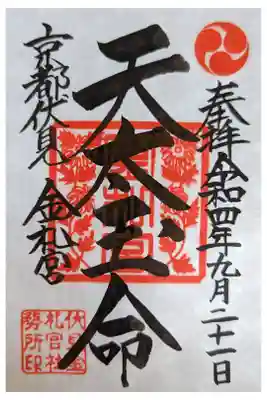 奉拝 令和四年九月二十一日
天太玉命
京都伏見 金札宮
金札宮
伏見金
札宮社
務所印